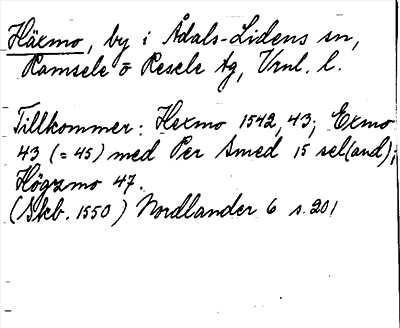 Häxmo, by i Ådals-Lidens sn,
Ramsele o Resele tg, Vrnl. l.
Tillkommer: Hexmo 1542, 43; Exmo
43 (=45) med Per Smed 15 sel(and);
Högxmo 47.
(Skb. 1550) Nordlander 6 s. 201